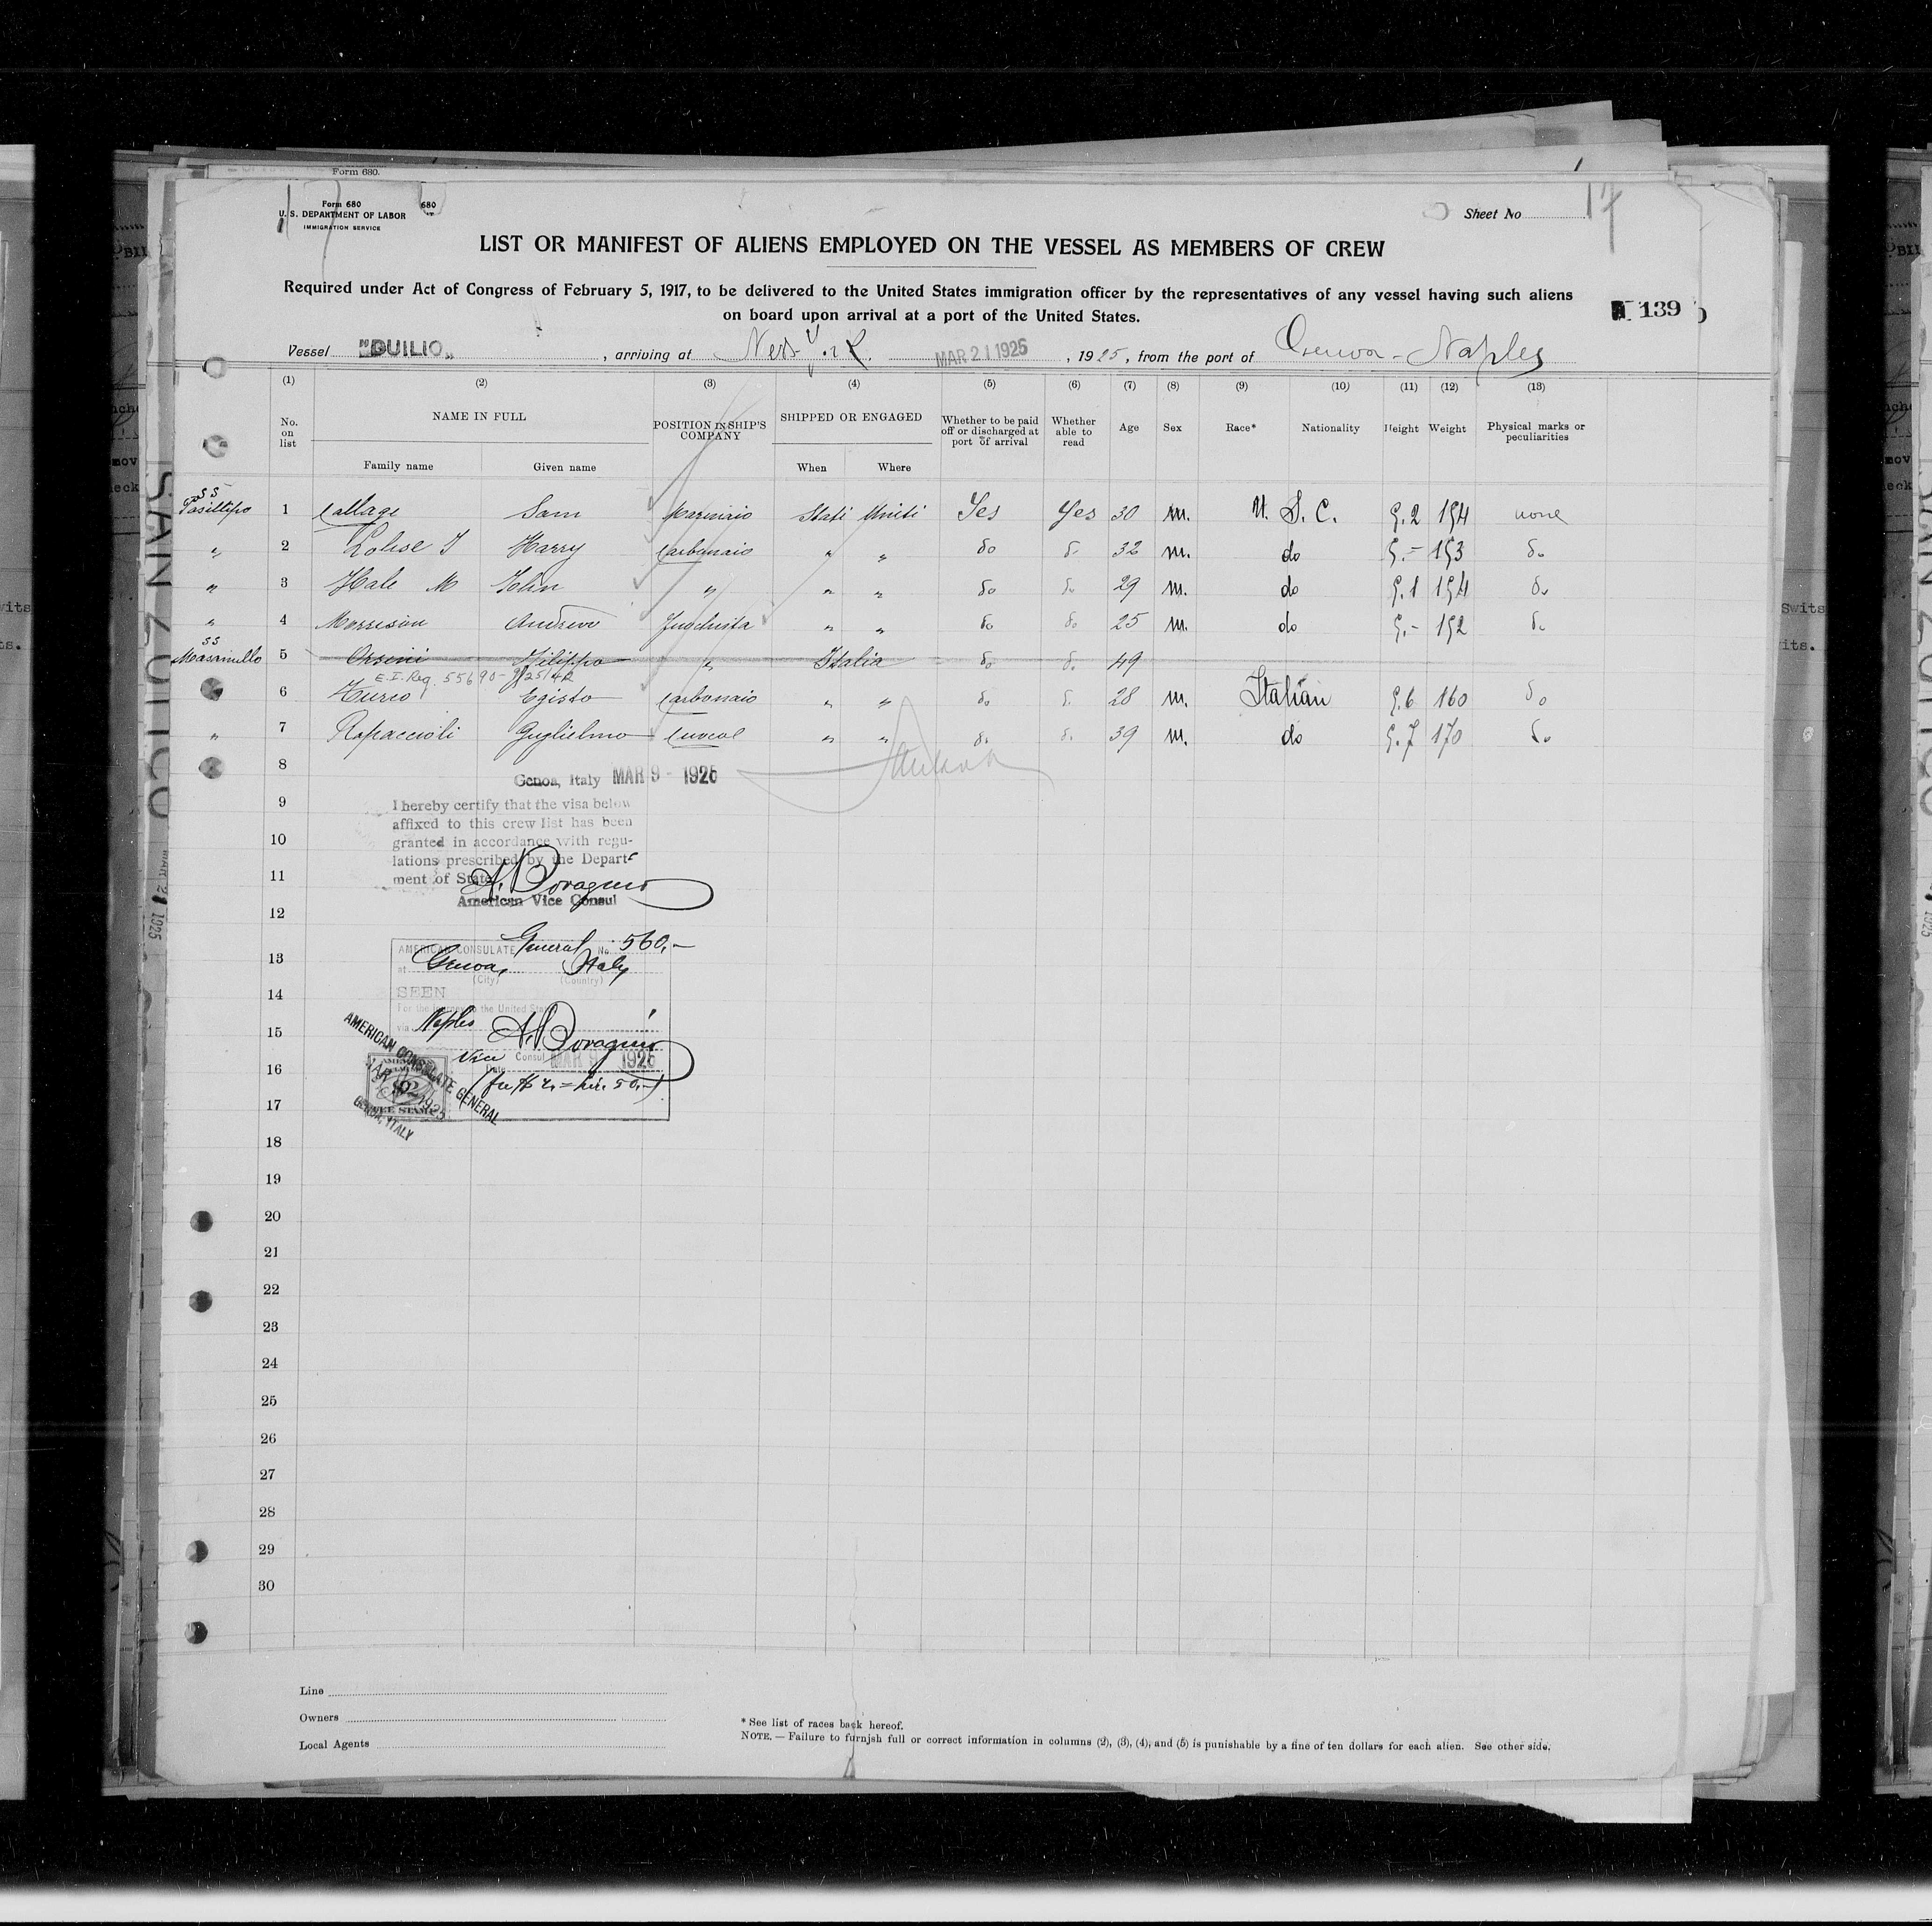 Form 680.
Form 680
U. S. DEPARTMENT OF LABOR
IMMIGRATION SERVICE
680
Sheet No 17
LIST OR MANIFEST OF ALIENS EMPLOYED ON THE VESSEL AS MEMBERS OF CREW
Required under Act of Congress of February 5, 1917, to be delivered to the United States immigration officer by the representatives of any vessel having such aliens
on board upon arrival at a port of the United States.
139
Vessel "DUILIO„ , arriving at New York. MAR 21 1925 , 1925, from the port of Genova - Naples
(1) (2) (3) (4) (5) (6) (7) (8) (9) (10) (11) (12) (13)
No. on list NAME IN FULL POSITION IN SHIP'S COMPANY SHIPPED OR ENGAGED Whether to be paid off or discharged at port of arrival Whether able to read Age Sex Race* Nationality Height Weight Physical marks or peculiarities
Family name Given name When Where
SS
1 Callage Sam Marinaio Stati Uniti Yes Yes 30 m. U. S. C. 5.2 154 none
„ 2 Harry Carbonaio „ „ do do 32 m. do 5.- 153 do
„ 3 Hale M John „ „ „ do do 29 m. do 5.1 154 do
„ 4 Morrison Andrew „ „ do do 25 m. do 5.- 152 do
SS
5 Orsini Filippo „ Italia do do 49
E.I. Reg. 55690
6 Egisto Carbonaio „ „ do do 28 m. Italian 5.6 160 do
„ 7 Rapaccioli Guglielmo „ „ do do 39 m. do 5.7 170 do
8
Genoa, Italy MAR 9 - 1925
9
I hereby certify that the visa below
affixed to this crew list has been
10
granted in accordance with regu-
lations prescribed by the Depart-
11
ment of State.
American Vice Consul
12
AMERICAN CONSULATE General No. 560.-
13
at Genoa, Italy
(City) (Country)
14
SEEN
For the journey to the United States
15
via Naples
Vice Consul MAR 9 1925
16
Date
(fee $ 2.= Lire 50.-)
AMERICAN CONSULATE GENERAL
MAR 9 1925
GENOA, ITALY
FEE STAMP
17
18
19
20
21
22
23
24
25
26
27
28
29
30
Line
Owners
Local Agents
* See list of races back hereof.
NOTE. — Failure to furnish full or correct information in columns (2), (3), (4), and (5) is punishable by a fine of ten dollars for each alien. See other side.
MAR 21 1925